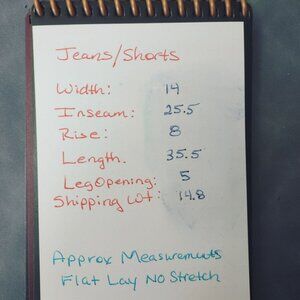 Jeans/Shorts
Width: 14
Inseam: 25.5
Rise: 8
Length. 35.5
Leg Opening: 5
Shipping Wt: 14.8
Approx Measurements
Flat Lay No Stretch